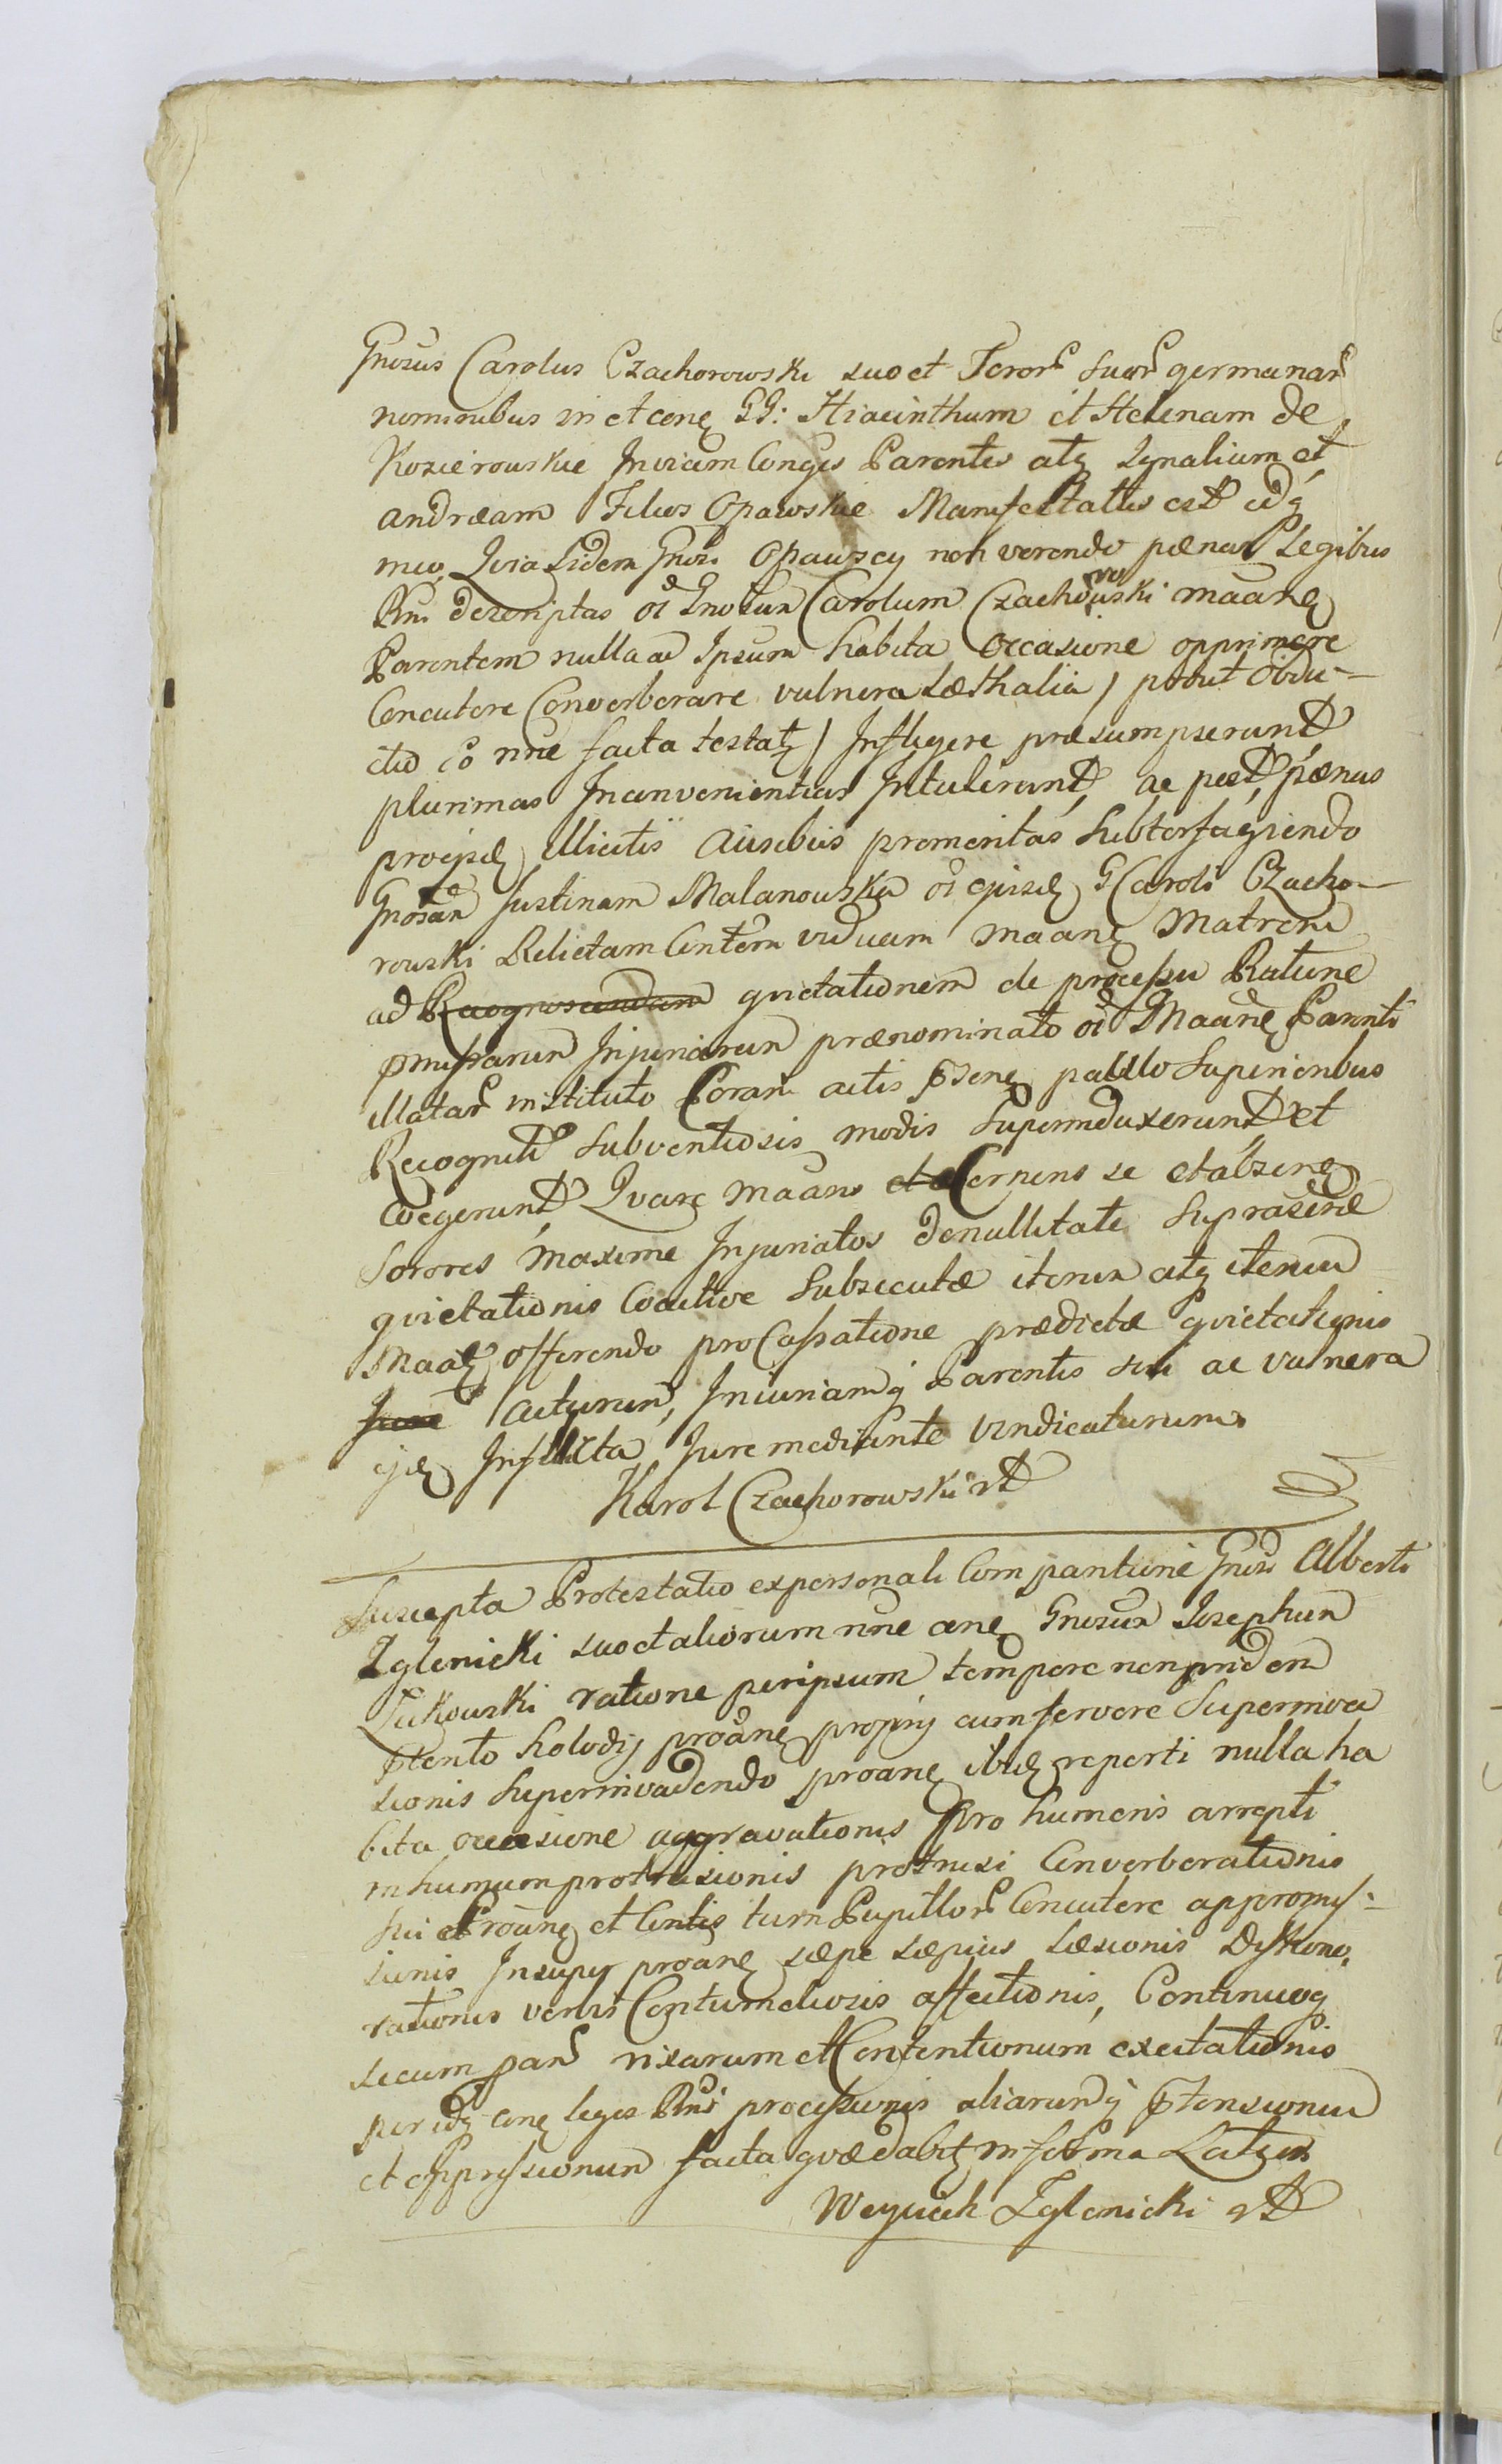 Gnosus Carolus Czachorowski suo et Soror Suar germanar
nominibus in et conq GG: Hiacinthum et Helenam de
Kozierowskie Invicem Conges Parentes atq Ignatium et
Andræam Filios Opawskie Manifestatus est idq
meo, Quia Iidem Gnosi Opawscy non verendo pænas Legibus
Rni descriptas ol Gnosum Carolum Czachorowski maanq
Parentem nulla ad Ipsum habita occasione opprimere
Concutere Converberare vulnera Læthalia / prout Obdu-
ctio eo nne facta testatq / Infligere præsumpserunt
plurimas Inconvenientias Intulerunt, ac post, pænas
pro ejsd Illicitis Ausibus promeritas Subterfugiendo
Gnosam Justinam Malanowska ol ejusd G Caroli Czacho-
rowski Relictam Contem viduam maanq Matrem
ad Recognoscendam quietationem de processu Ratione
pmissarum Injuriarum prænominato ol Maanq Parenti
illatar instituto Coram actis psenq paulo Superioribus
Recognit Subventiosis modis Superinduxerunt et
Coegerunt, Quare maans et Cernens se et absenq
Sorores maxime Injuriatos de nullitate Suprascrie
quietationis Coactive Subsecutæ iterum atq iterum
Maatq offerendo pro Cassatione prædictæ quietationis
Jure Acturum, Injuriamq Parentis sui ac vulnera
ejd Inflicta Jure mediante vindicaturum
Karol Czachorowski
Suscepta Protestatio ex personali Comparitione Gnosi Alberti
Zglenicki suo et aliorum nne conq Gnosum Josephum
Żukowski ratione per ipsum tempore non pridem
ptento holodij proanq proprij cum fervore Superinva
sionis Superinvadendo proanq ibid reperti nulla ha
bita occasione aggravationis pro humeris arrepti
in humum protrusionis protrusi Converberationis
Sui et Proanq et Contis tum Pupillor Concutere appromis-
sionis Insuper proanq sæpe sæpius Læsionis Dishono,
rationis verbis Contumeliosis affectionis, Continuoq
secum par rixarum et Contentionum excitationis
per idq conq leges Rni processionis aliarumq ptensionum
et oppressionum facta quæ dabitq in forma Latiori
Woyciech Zglenicki